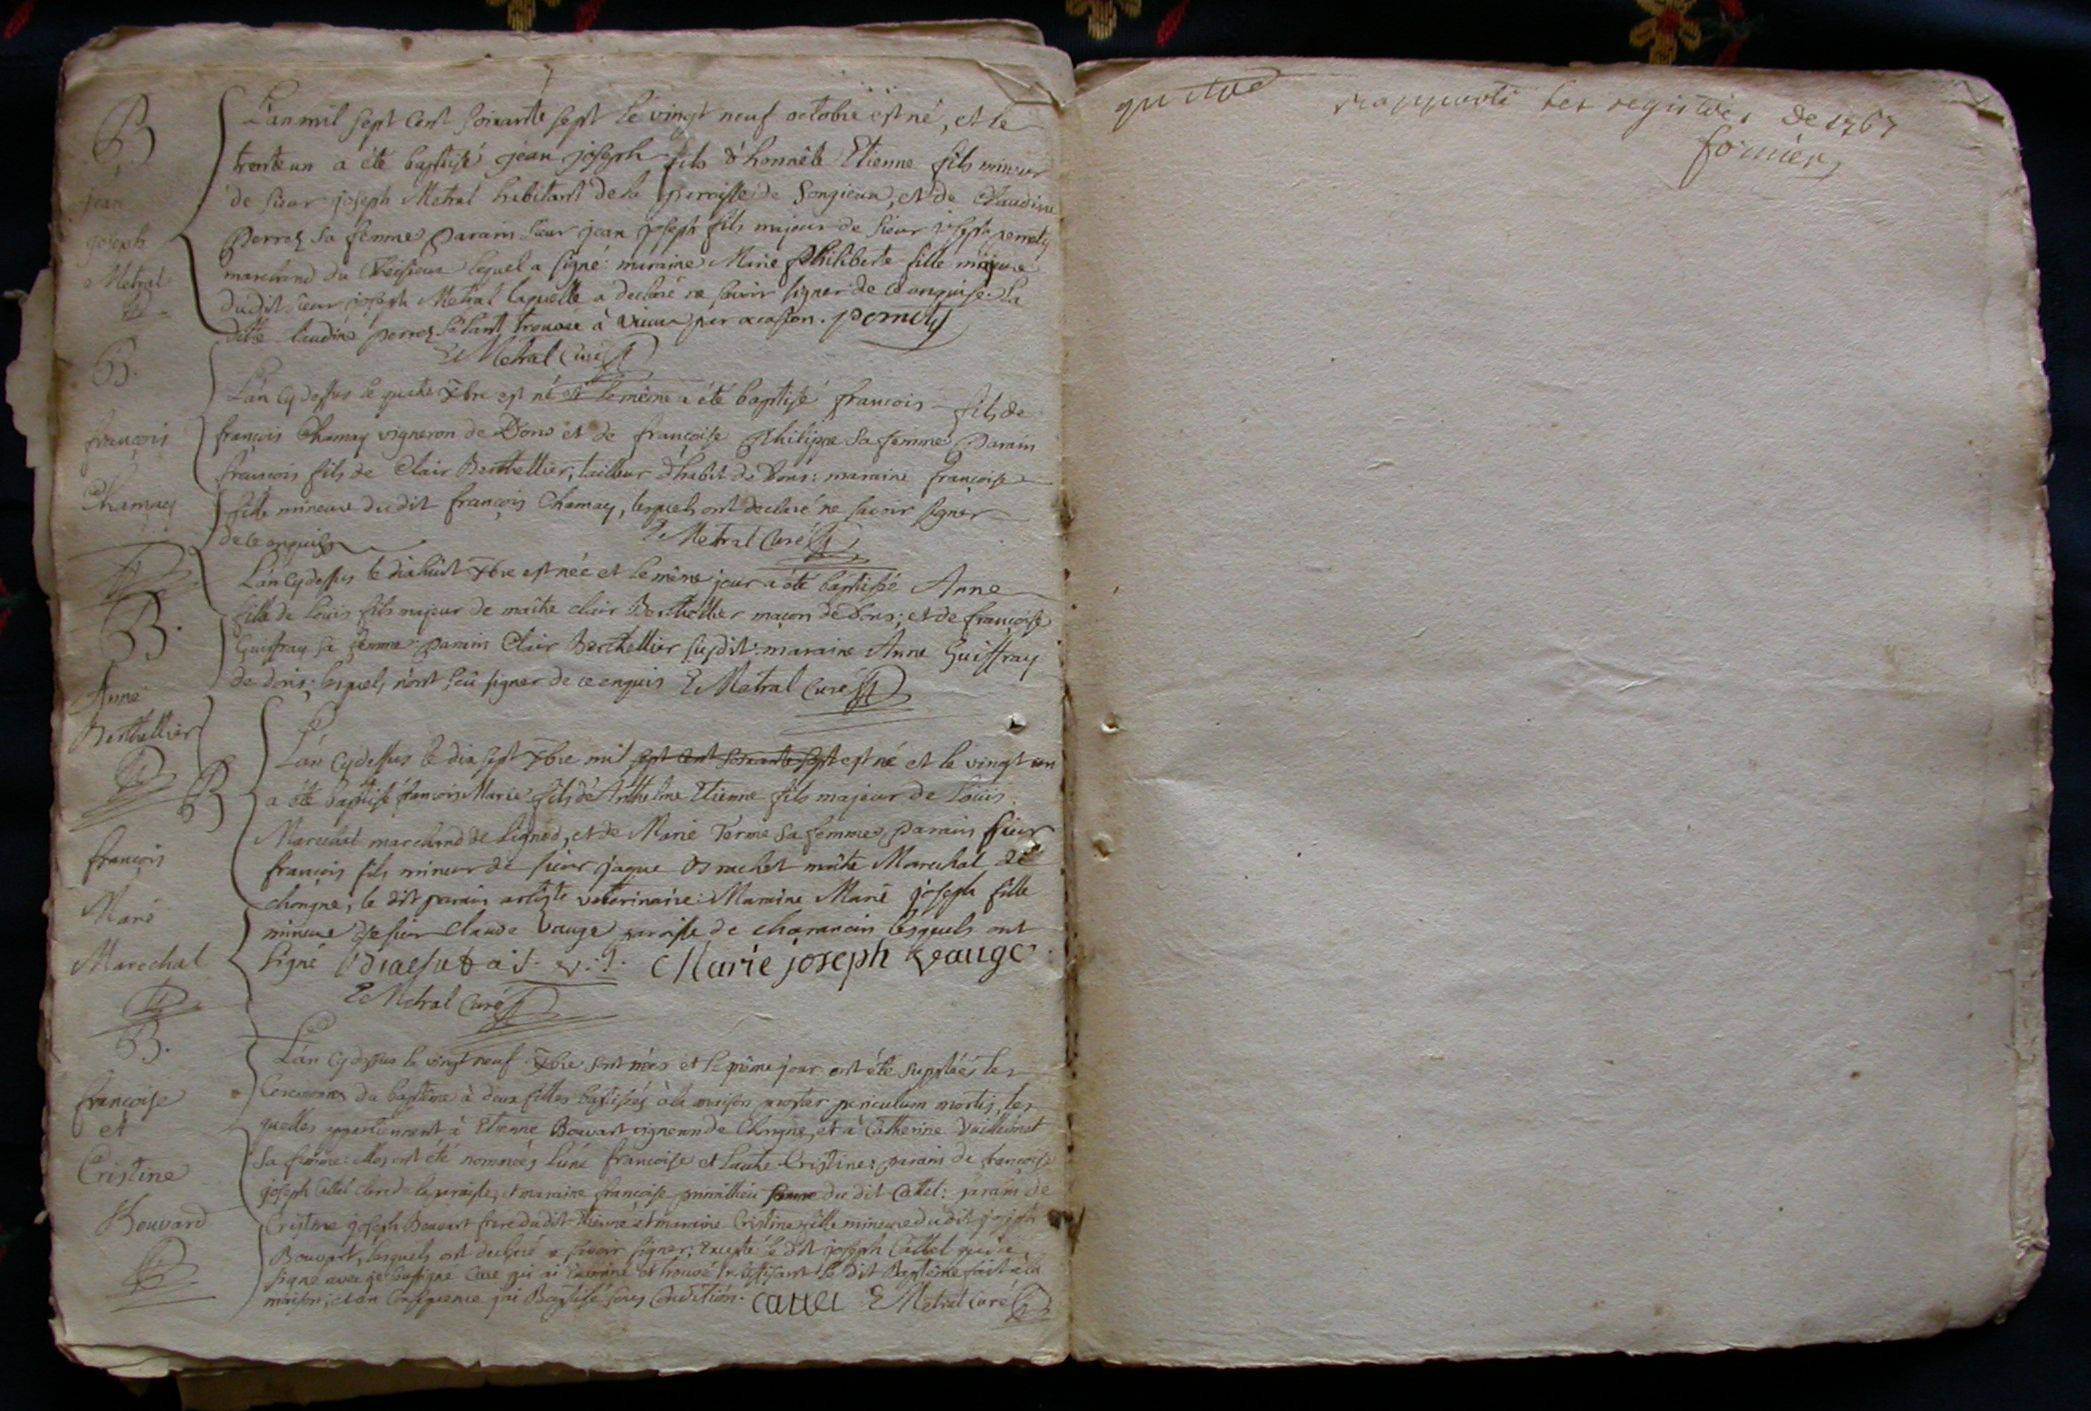 B
jean
joseph
Metral
L'an mil sept cent soixante sept le vingt neuf octobre est né, et le
trente un a été baptisé jean joseph fils d'honnête Etienne fils mineur
de sieur joseph Metral habitant de la parroisse de Songieux, et de Claudine
Perroz sa femme parain sieur jean joseph fils majeur de sieur joseph pernety
marchand du lequel a signé: maraine Marie Philiberte fille mineure
dudit sieur joseph Metral laquelle a declaré ne savoir signer de ce enquise. La
ditte Claudine perroz s'étant trouvée à Vieux par ocasion. pernety
E Metral Curé
B.
françois
Chamay
L'an cy dessus le quatre xbre est né et le même a été baptisé françois fils de
françois Chamay vigneron de Dons et de françoise Philippe sa femme Parain
francois fils de Clair Berthellier, tailleur d'habit de Dons: maraine françoise
fille mineure du dit françois Chamay, lesquels ont declaré ne savoir signer
de ce enquis
E Metral Curé
B.
Anne
Berthellier
L'an cy dessus le dix huit xbre est née et le même jour a été baptisée Anne
fille de Louis fils majeur de maitre clair Berthellier maçon de Dons; et de françoise
Guiffray sa femme: parain Clair Berthellier susdit: maraine Anne Guiffray
de dons; lesquels n'ont seû signer de ce enquis E Metral Curé
B
françois
Marie
Marechal
L'an cy dessus le dix sept xbre mil sept cent soixante sept est né et le vingt un
a été baptisé françois Marie fils de Anthelme Etienne fils majeur de Loüis
Marechal marchand de Lignod, et de Marie Terme sa femme, parain sieur
françois fils mineur de sieur jaque maitre Marechal de
chongne, le dit parain artiste veterinaire: Maraine Marie joseph fille
mineure de sieur Claude Vauge paroisse de charancin lesquels ont
signé Marie joseph Vauge
E Metral Curé
B.
françoise
et
Cristine
Bouvard
L'an cy dessus le vingt neuf xbre sont nées et le même jour ont été supplées les
Ceremonies du baptême à deux filles baptisées à la maison propter periculum mortis, les
quelles appartiennent à Etienne Bouvart vigneron de Chongne, et à Catherine
sa femme: elles ont été nommées l'une françoise et l'autre Cristine; parain de françoise
joseph Cattel clerc de la paroisse, et maraine françoise femme du dit Cattel: parain de
Cristine joseph Bouvart frere du dit Etienne et maraine Cristine fille mineure du dit joseph
Bouvart, lesquels ont declaré ne savoir signer; excepté le dit joseph Cattel qui a
signé avec je soussigné Curé qui ai examiné et trouvé le dit Baptême fait à la
maison; et en consequence j'ai Baptisé sous condition. cattel E Metral curé
rapporté les registres de 1767